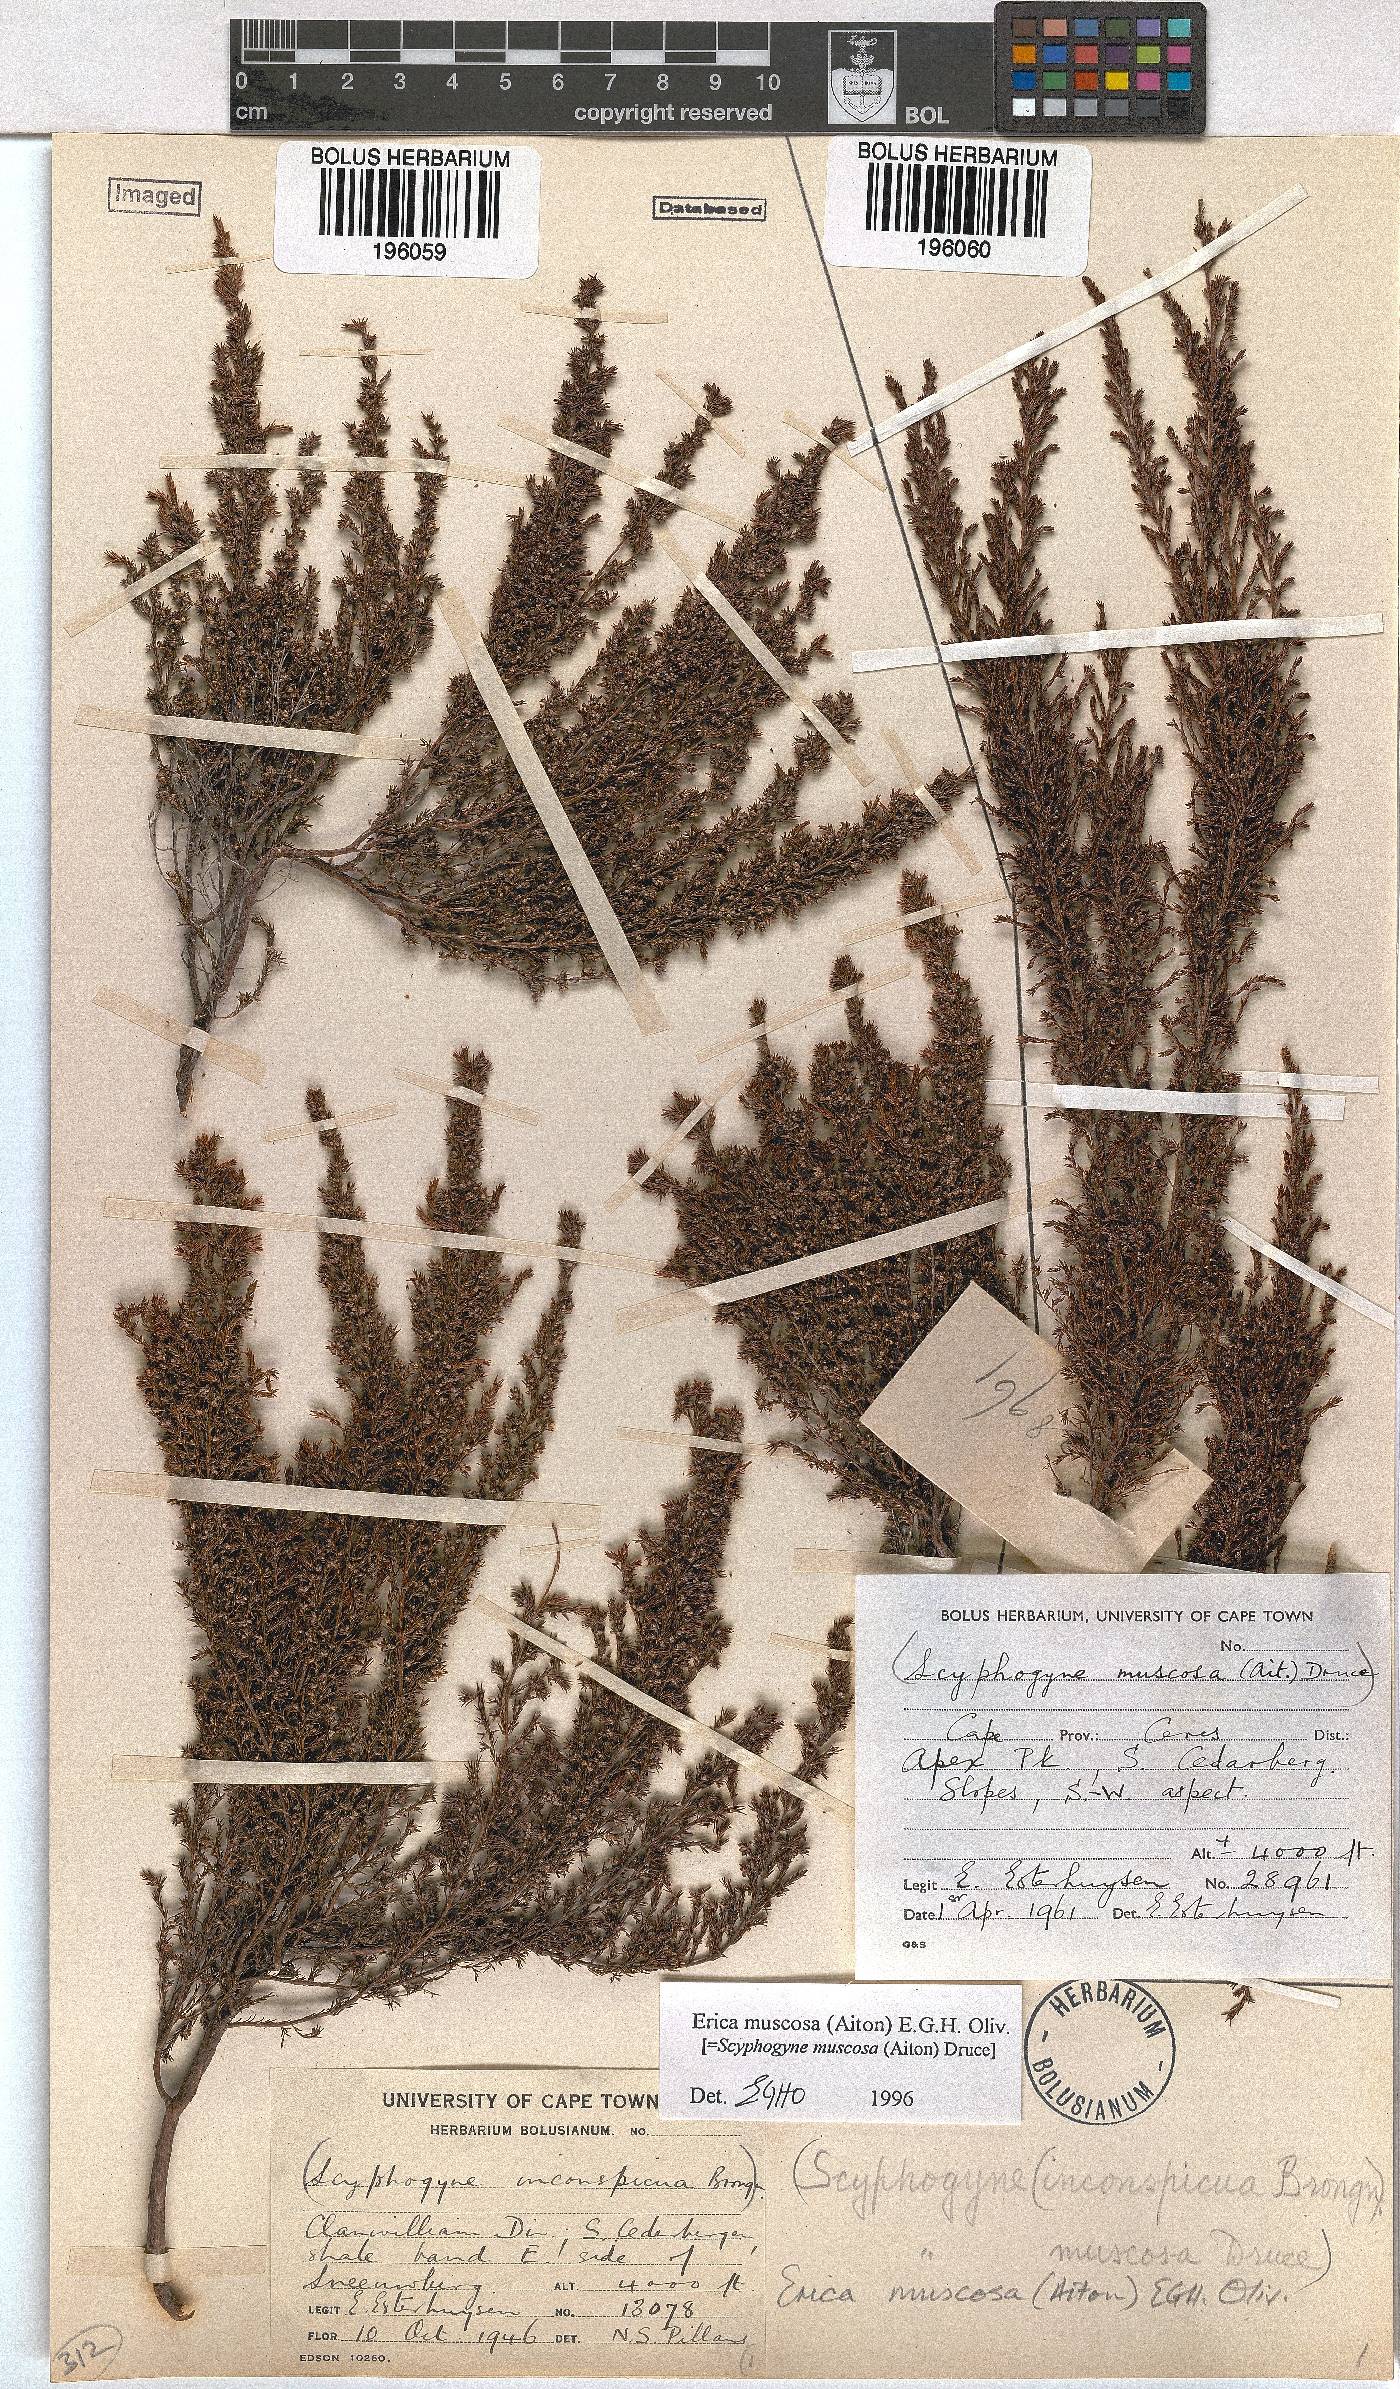 0 1 2 3 4 5 6 7 8 9 10
cm
copyright reserved
BOL
Imaged
BOLUS HERBARIUM
196059
Databased
BOLUS HERBARIUM
196060
1968
BOLUS HERBARIUM, UNIVERSITY OF CAPE TOWN
No.
(Scyphogyne muscosa (Ait.) Druce)
Cape Prov.: Ceres Dist.:
Apex Pk., S. Cedarberg.
Slopes, S.-W. aspect.
Alt. ± 4000 ft.
Legit E. Esterhuysen No. 28961
Date 1 Apr. 1961 Det. E Esterhuysen
G&S
Erica muscosa (Aiton) E.G.H. Oliv.
[=Scyphogyne muscosa (Aiton) Druce]
Det. EGHO 1996
HERBARIUM
BOLUSIANUM
UNIVERSITY OF CAPE TOWN
HERBARIUM BOLUSIANUM. NO.
(Scyphogyne inconspicua Brongn.)
Clanwilliam Div.; S. Cederbergen,
shale band E. side of
Sneeuwberg. ALT. 4000 ft
LEGIT E. Esterhuysen NO. 13078
FLOR 10 Oct 1946 DET. N.S. Pillans
EDSON 10260.
(Scyphogyne (inconspicua Brongn).
" muscosa Druce)
Erica muscosa (Aiton) EGH. Oliv.
312
1